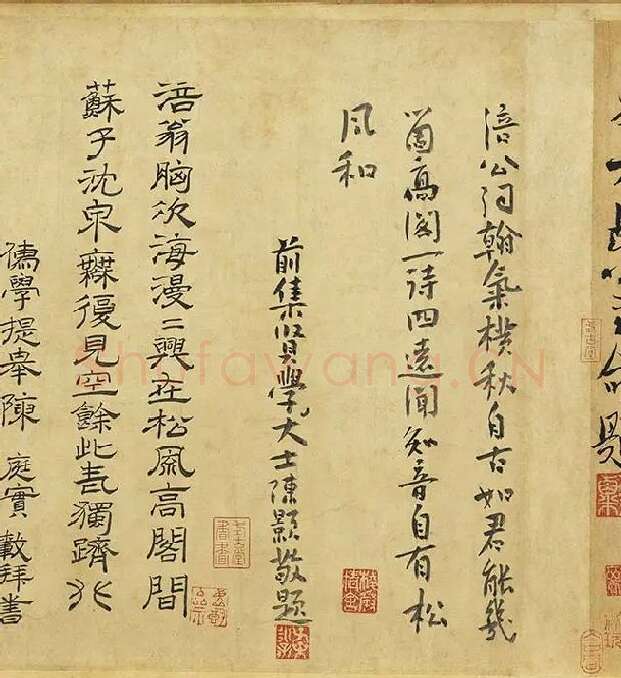 命題
涪公詞翰氣横秋自古如君能幾
箇高閣一詩四遠聞知音自有松
風和
前集賢學大士陳顥敬題
涪翁胸次海漫〻興在松風高閣間
蘇子沈泉無復見空餘此卷獨躋
儒學提舉陳庭實敬拜書
Shufawang.CN